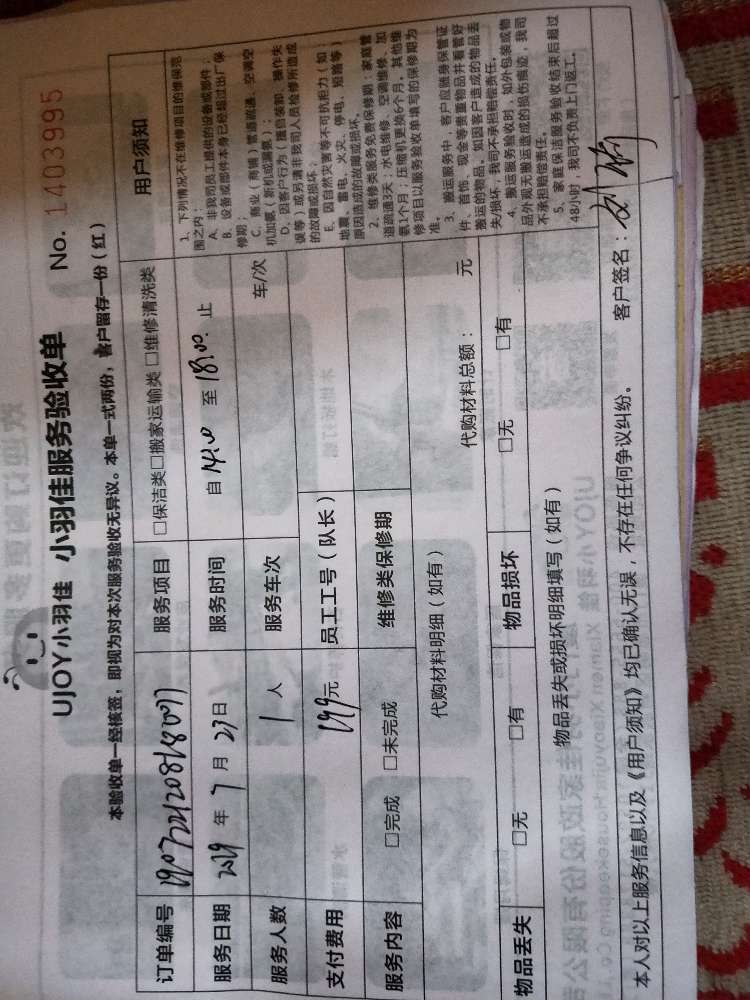 UJOY小羽佳 小羽佳服务验收单 No. 1403995
本验收单一经核签,即视为对本次服务验收无异议。本单一式两份,客户留存一份(红)
订单编号
服务项目 □保洁类□搬家运输类 □维修清洗类
服务日期 2019 年 7 月 23 日
服务时间 自 14:00 至 18:00. 止
服务人数 1 人
服务车次 车/次
支付费用 199元
员工工号(队长)
服务内容 □完成 □未完成
维修类保修期
代购材料明细(如有)
代购材料总额: 元
物品丢失 □无 □有
物品损坏 □无 □有
物品丢失或损坏明细填写(如有)
用户须知
1、下列情况不在维修项目的维保范
围之内:
A、非我司员工提供的设备或部件;
B、设备或部件本身已经超过出厂保
修期;
C、商业(商铺)管道疏通、空调空
机加氨(新机或漏氨);
D、因客户行为(擅自装卸、操作失
误等)或另请非我司人员检修所造成
的故障或损坏;
E、因自然灾害等不可抗能力(如
地震、雷电、火灾、停电、短路等)
原因造成的故障或损坏。
2、维修类服务免费保修期:家庭管
道疏通3天;水电维修、空调维修、加
氨1个月;压缩机更换6个月。其他维
修项目以服务验收单填写的保修期为
准。
3、搬运服务中,客户应随身保管证
件、首饰、现金等贵重物品并看管好
搬运的物品。如因客户造成的物品丢
失/损坏,我司不承担赔偿责任。
4、搬运服务验收时,如外包装或物
品外观无搬运造成的损伤痕迹,我司
不承担赔偿责任。
5、家庭保洁服务验收结束后超过
48小时,我司不负责上门返工。
本人对以上服务信息以及《用户须知》均已确认无误,不存在任何争议纠纷。 客户签名: